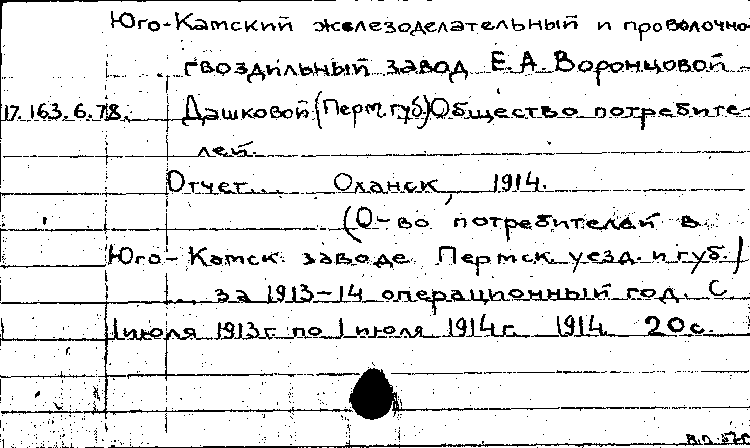 Юго-Камский железоделательный и проволочно-
гвоздильный завод Е.А.Воронцовой-
17.163.6.78. Дашковой (Перм.губ) Общество потребите-
лей.
Отчет... Оханск, 1914.
(О-во потребителей в
Юго-Камск. заводе Пермск. уезд. и губ.)
... за 1913-14 операционный год. С
1 июля 1913г. по 1 июля 1914г. 1914. 20с.